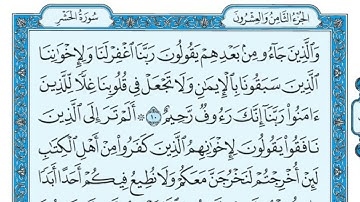 الجزء الثامن والعشرون سورة الحشر
وَالَّذِينَ جَاءُو مِنۢ بَعْدِهِمْ يَقُولُونَ رَبَّنَا اغْفِرْ لَنَا وَلِإِخْوَٰنِنَا
الَّذِينَ سَبَقُونَا بِالْإِيمَٰنِ وَلَا تَجْعَلْ فِي قُلُوبِنَا غِلًّا لِّلَّذِينَ
ءَامَنُوا رَبَّنَا إِنَّكَ رَءُوفٌ رَّحِيمٌ ١٠ ۞ أَلَمْ تَرَ إِلَى الَّذِينَ
نَافَقُوا يَقُولُونَ لِإِخْوَٰنِهِمُ الَّذِينَ كَفَرُوا مِنْ أَهْلِ الْكِتَٰبِ
لَئِنْ أُخْرِجْتُمْ لَنَخْرُجَنَّ مَعَكُمْ وَلَا نُطِيعُ فِيكُمْ أَحَدًا أَبَدًا